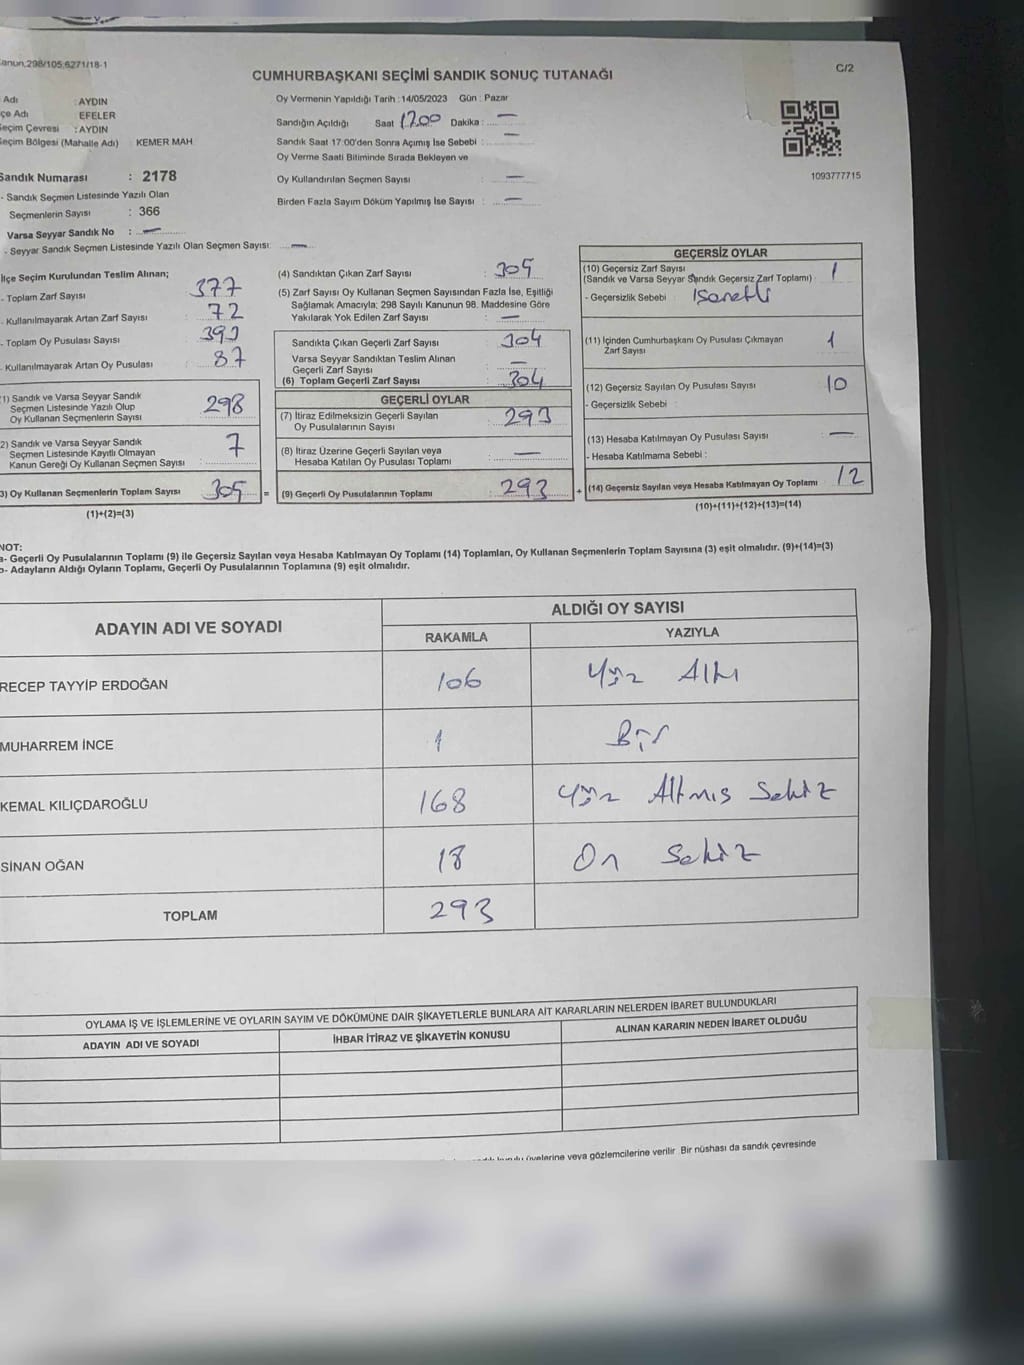 anun,298/105,6271/18-1
C/2
CUMHURBAŞKANI SEÇİMİ SANDIK SONUÇ TUTANAĞI
Adı : AYDIN
çe Adı EFELER
eçim Çevresi : AYDIN
eçim Bölgesi (Mahalle Adı) KEMER MAH
Sandık Numarası : 2178
- Sandık Seçmen Listesinde Yazılı Olan
Seçmenlerin Sayısı : 366
Varsa Seyyar Sandık No : —
- Seyyar Sandık Seçmen Listesinde Yazılı Olan Seçmen Sayısı: —
Oy Vermenin Yapıldığı Tarih : 14/05/2023 Gün : Pazar
Sandığın Açıldığı Saat 1700 Dakika : —
Sandık Saat 17:00'den Sonra Açımış İse Sebebi : —
Oy Verme Saati Bitiminde Sırada Bekleyen ve
Oy Kullandırılan Seçmen Sayısı : —
Birden Fazla Sayım Döküm Yapılmış İse Sayısı : —
1093777715
İlçe Seçim Kurulundan Teslim Alınan;
- Toplam Zarf Sayısı : 377
- Kullanılmayarak Artan Zarf Sayısı : 72
- Toplam Oy Pusulası Sayısı : 392
- Kullanılmayarak Artan Oy Pusulası : 87
1) Sandık ve Varsa Seyyar Sandık
Seçmen Listesinde Yazılı Olup
Oy Kullanan Seçmenlerin Sayısı : 298
2) Sandık ve Varsa Seyyar Sandık
Seçmen Listesinde Kayıtlı Olmayan
Kanun Gereği Oy Kullanan Seçmen Sayısı : 7
3) Oy Kullanan Seçmenlerin Toplam Sayısı 305 =
(1)+(2)=(3)
(4) Sandıktan Çıkan Zarf Sayısı : 305
(5) Zarf Sayısı Oy Kullanan Seçmen Sayısından Fazla İse, Eşitliği
Sağlamak Amacıyla; 298 Sayılı Kanunun 98. Maddesine Göre
Yakılarak Yok Edilen Zarf Sayısı : —
Sandıkta Çıkan Geçerli Zarf Sayısı : 304
Varsa Seyyar Sandıktan Teslim Alınan
Geçerli Zarf Sayısı : —
(6) Toplam Geçerli Zarf Sayısı : 304
GEÇERLİ OYLAR
(7) İtiraz Edilmeksizin Geçerli Sayılan
Oy Pusulalarının Sayısı : 293
(8) İtiraz Üzerine Geçerli Sayılan veya
Hesaba Katılan Oy Pusulası Toplamı : —
(9) Geçerli Oy Pusulalarının Toplamı : 293 +
GEÇERSİZ OYLAR
(10) Geçersiz Zarf Sayısı
(Sandık ve Varsa Seyyar Sandık Geçersiz Zarf Toplamı) : 1
- Geçersizlik Sebebi : işaretli
(11) İçinden Cumhurbaşkanı Oy Pusulası Çıkmayan
Zarf Sayısı 1
(12) Geçersiz Sayılan Oy Pusulası Sayısı 10
- Geçersizlik Sebebi :
(13) Hesaba Katılmayan Oy Pusulası Sayısı —
- Hesaba Katılmama Sebebi :
(14) Geçersiz Sayılan veya Hesaba Katılmayan Oy Toplamı 12
(10)+(11)+(12)+(13)=(14)
NOT:
a- Geçerli Oy Pusulalarının Toplamı (9) ile Geçersiz Sayılan veya Hesaba Katılmayan Oy Toplamı (14) Toplamları, Oy Kullanan Seçmenlerin Toplam Sayısına (3) eşit olmalıdır. (9)+(14)=(3)
b- Adayların Aldığı Oyların Toplamı, Geçerli Oy Pusulalarının Toplamına (9) eşit olmalıdır.
ADAYIN ADI VE SOYADI
ALDIĞI OY SAYISI
RAKAMLA YAZIYLA
RECEP TAYYİP ERDOĞAN 106 Yüz Altı
MUHARREM İNCE 1 Bir
KEMAL KILIÇDAROĞLU 168 Yüz Altmış Sekiz
SİNAN OĞAN 18 On Sekiz
TOPLAM 293
OYLAMA İŞ VE İŞLEMLERİNE VE OYLARIN SAYIM VE DÖKÜMÜNE DAİR ŞİKAYETLERLE BUNLARA AİT KARARLARIN NELERDEN İBARET BULUNDUKLARI
ADAYIN ADI VE SOYADI İHBAR İTİRAZ VE ŞİKAYETİN KONUSU ALINAN KARARIN NEDEN İBARET OLDUĞU
üyelerine veya gözlemcilerine verilir Bir nüshası da sandık çevresinde